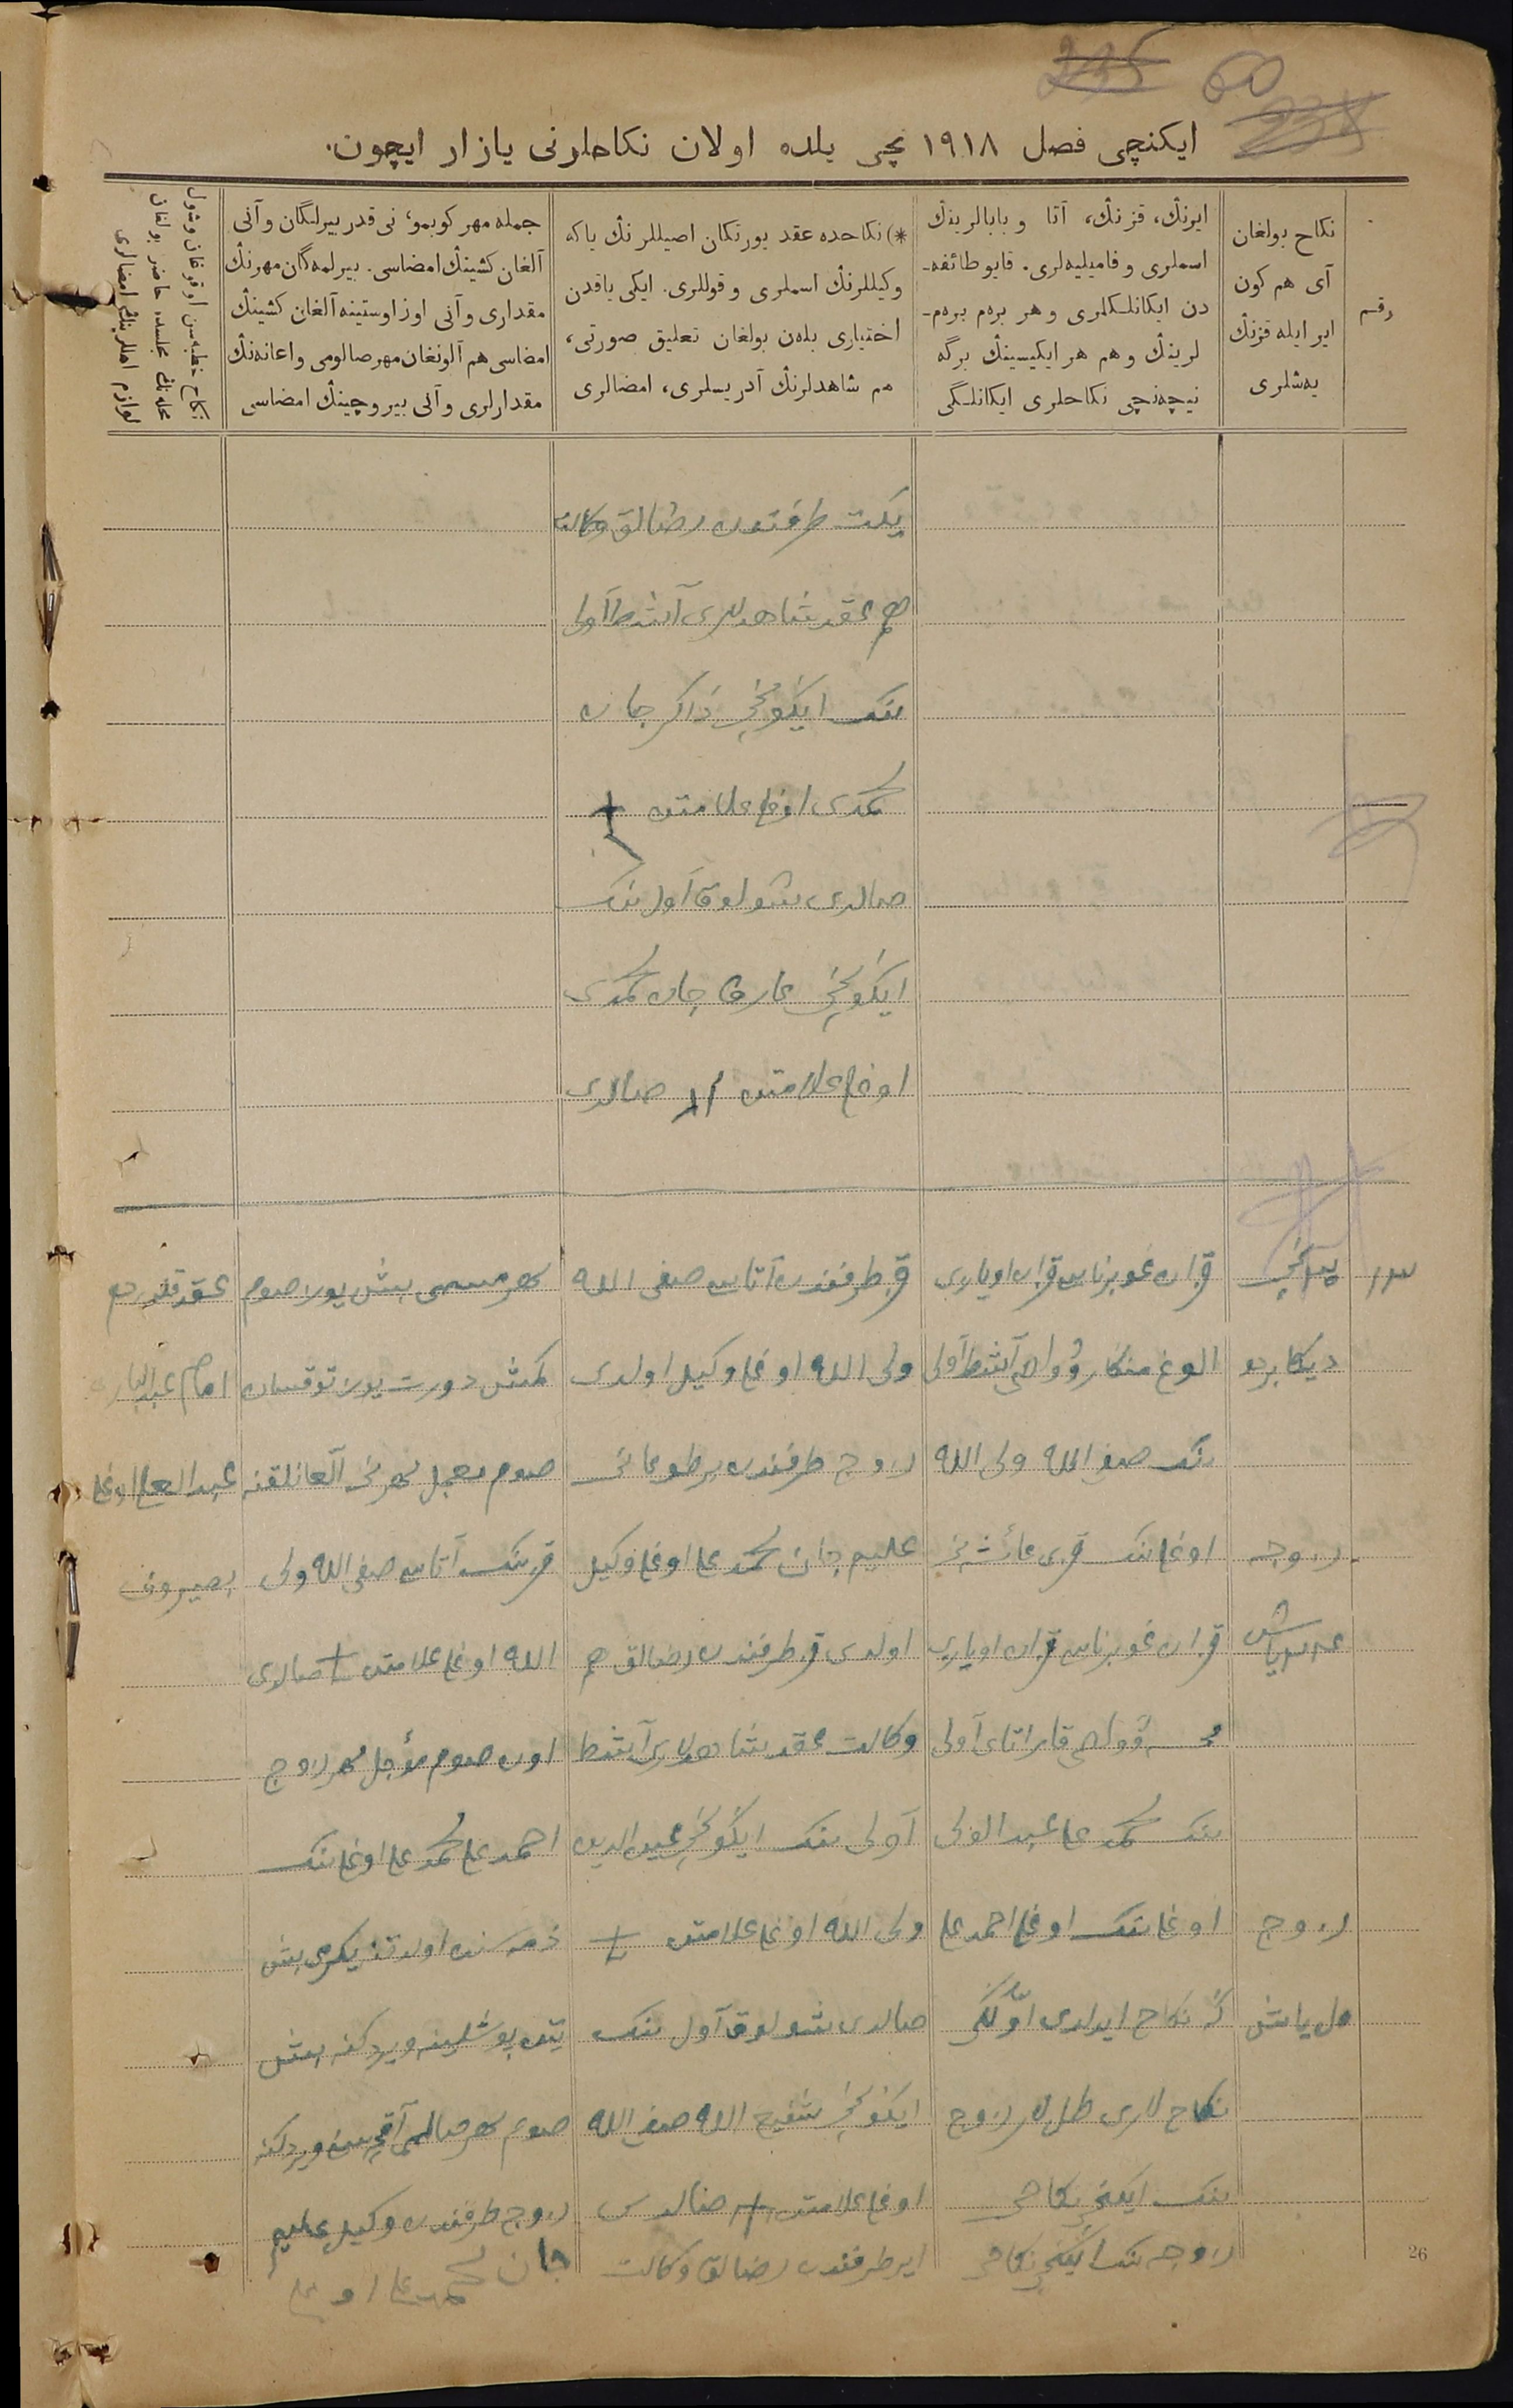 235 60
238
ایكنچی فصل ۱۹۱۸ نچی یلده اولان نكاحلرنی یازار ایچون.
رقم
نكاح بولغان
آی هم كون
ایر ایله قزنڭ
یه‌شلری
ایرنڭ، قزنڭ، آتا و بابالرینڭ
اسملری و فامیلیه‌لری. قایو طائفه‌ـ
دن ایكانلـكلری و هر بره‌م بره‌م‌ـ
لرینڭ و هم هر ایكیسینڭ برگه
نیچه‌نچی نكاحلری ایكانلـگی
*) نكاحده عقد یورتكان اصیللرنڭ یاكه
وكیللرنڭ اسملری و قوللری. ایكی یاقدن
اختیاری بله‌ن بولغان تعلیق صورتی،
هم شاهدلرنڭ آدریسلری، امضالری
جمله مهر كوبمو، نی قدر بیرلگان و آنی
آلغان كشینڭ امضاسی. بیرلمه‌گان مهرنڭ
مقداری و آنی اوز اوستینه آلغان كشینڭ
امضاسی هم آلونغان مهر صالومی و اعانه‌نڭ
مقدارلری و آنی بیروچینڭ امضاسی
نكاح خطبه‌سن اوقوغان و شول
محله‌نڭ مجلسده حاضر بولغان
لوازم اهللرینڭ امضالری
یكت طرفندن رضالق وكالت
هم عقد شاهدلری آشط آولی
ننك ایكونچی ذاكر جان
محمدی اوغلی علامتن +
صالدی شولوق آول ننك
ایكونچی عارف جان محمدی
اوغلی علامتن صالدی
۱۳
دیكابردە
زوجه
یاش
زوج
یاش
قزان غوبرناسی قزان اویازی
الوغ منكار وولوسی آشط آولی
ننك صفی الله ولی الله
اوغلی ننك قزی عائشه نی
قزان غوبرناسی قزان اویازی
وولوسی قاراتای آولی
ننك محمد علی عبد الولی
اوغلی ننك اوغلی احمد علی
گه نكاح ایدلدی اوّلگی
نكاح لاری طلاق زوج
ننك ایكنچی نكاحی
زوجه ننك ایكنچی نكاحی
قز طرفندن آتاسی صفی الله
ولی الله اوغلی وكیل اولدی
زوج طرفندن بر طوغانی
علیم جان محمد علی اوغلی وكیل
اولدی قز طرفندن رضالق هم
وكالت عقد شاهدلاری آشط
آولی ننك ایكونچی عین الدین
ولی الله اوغلی علامتن +
صالدی شولوق آول ننك
ایكونچی شفیع الله صفی الله
اوغلی علامتن + صالدی
ایر طرفندن رضالق وكالت
مهر مسمی بیش یوز صوم
كمش دورت یوز توقسان
صوم معجل مهرنی آلغانلقنه
قز ننك آتاسی صفی الله ولی
الله اوغلی علامتن + صالدی
اون صوم مؤجل مهر زوج
احمد علی محمد علی اوغلی ننك
ذمه سنده اولدقنه یكرمی بیش
صوم مهر صالمی آقچه سن ویردكنه
زوج طرفندن وكیل علیم
جان محمد علی اوغلی
عقد قلدردم
امام عبد الباری
عبد العلی اوغلی
بصیروف
26